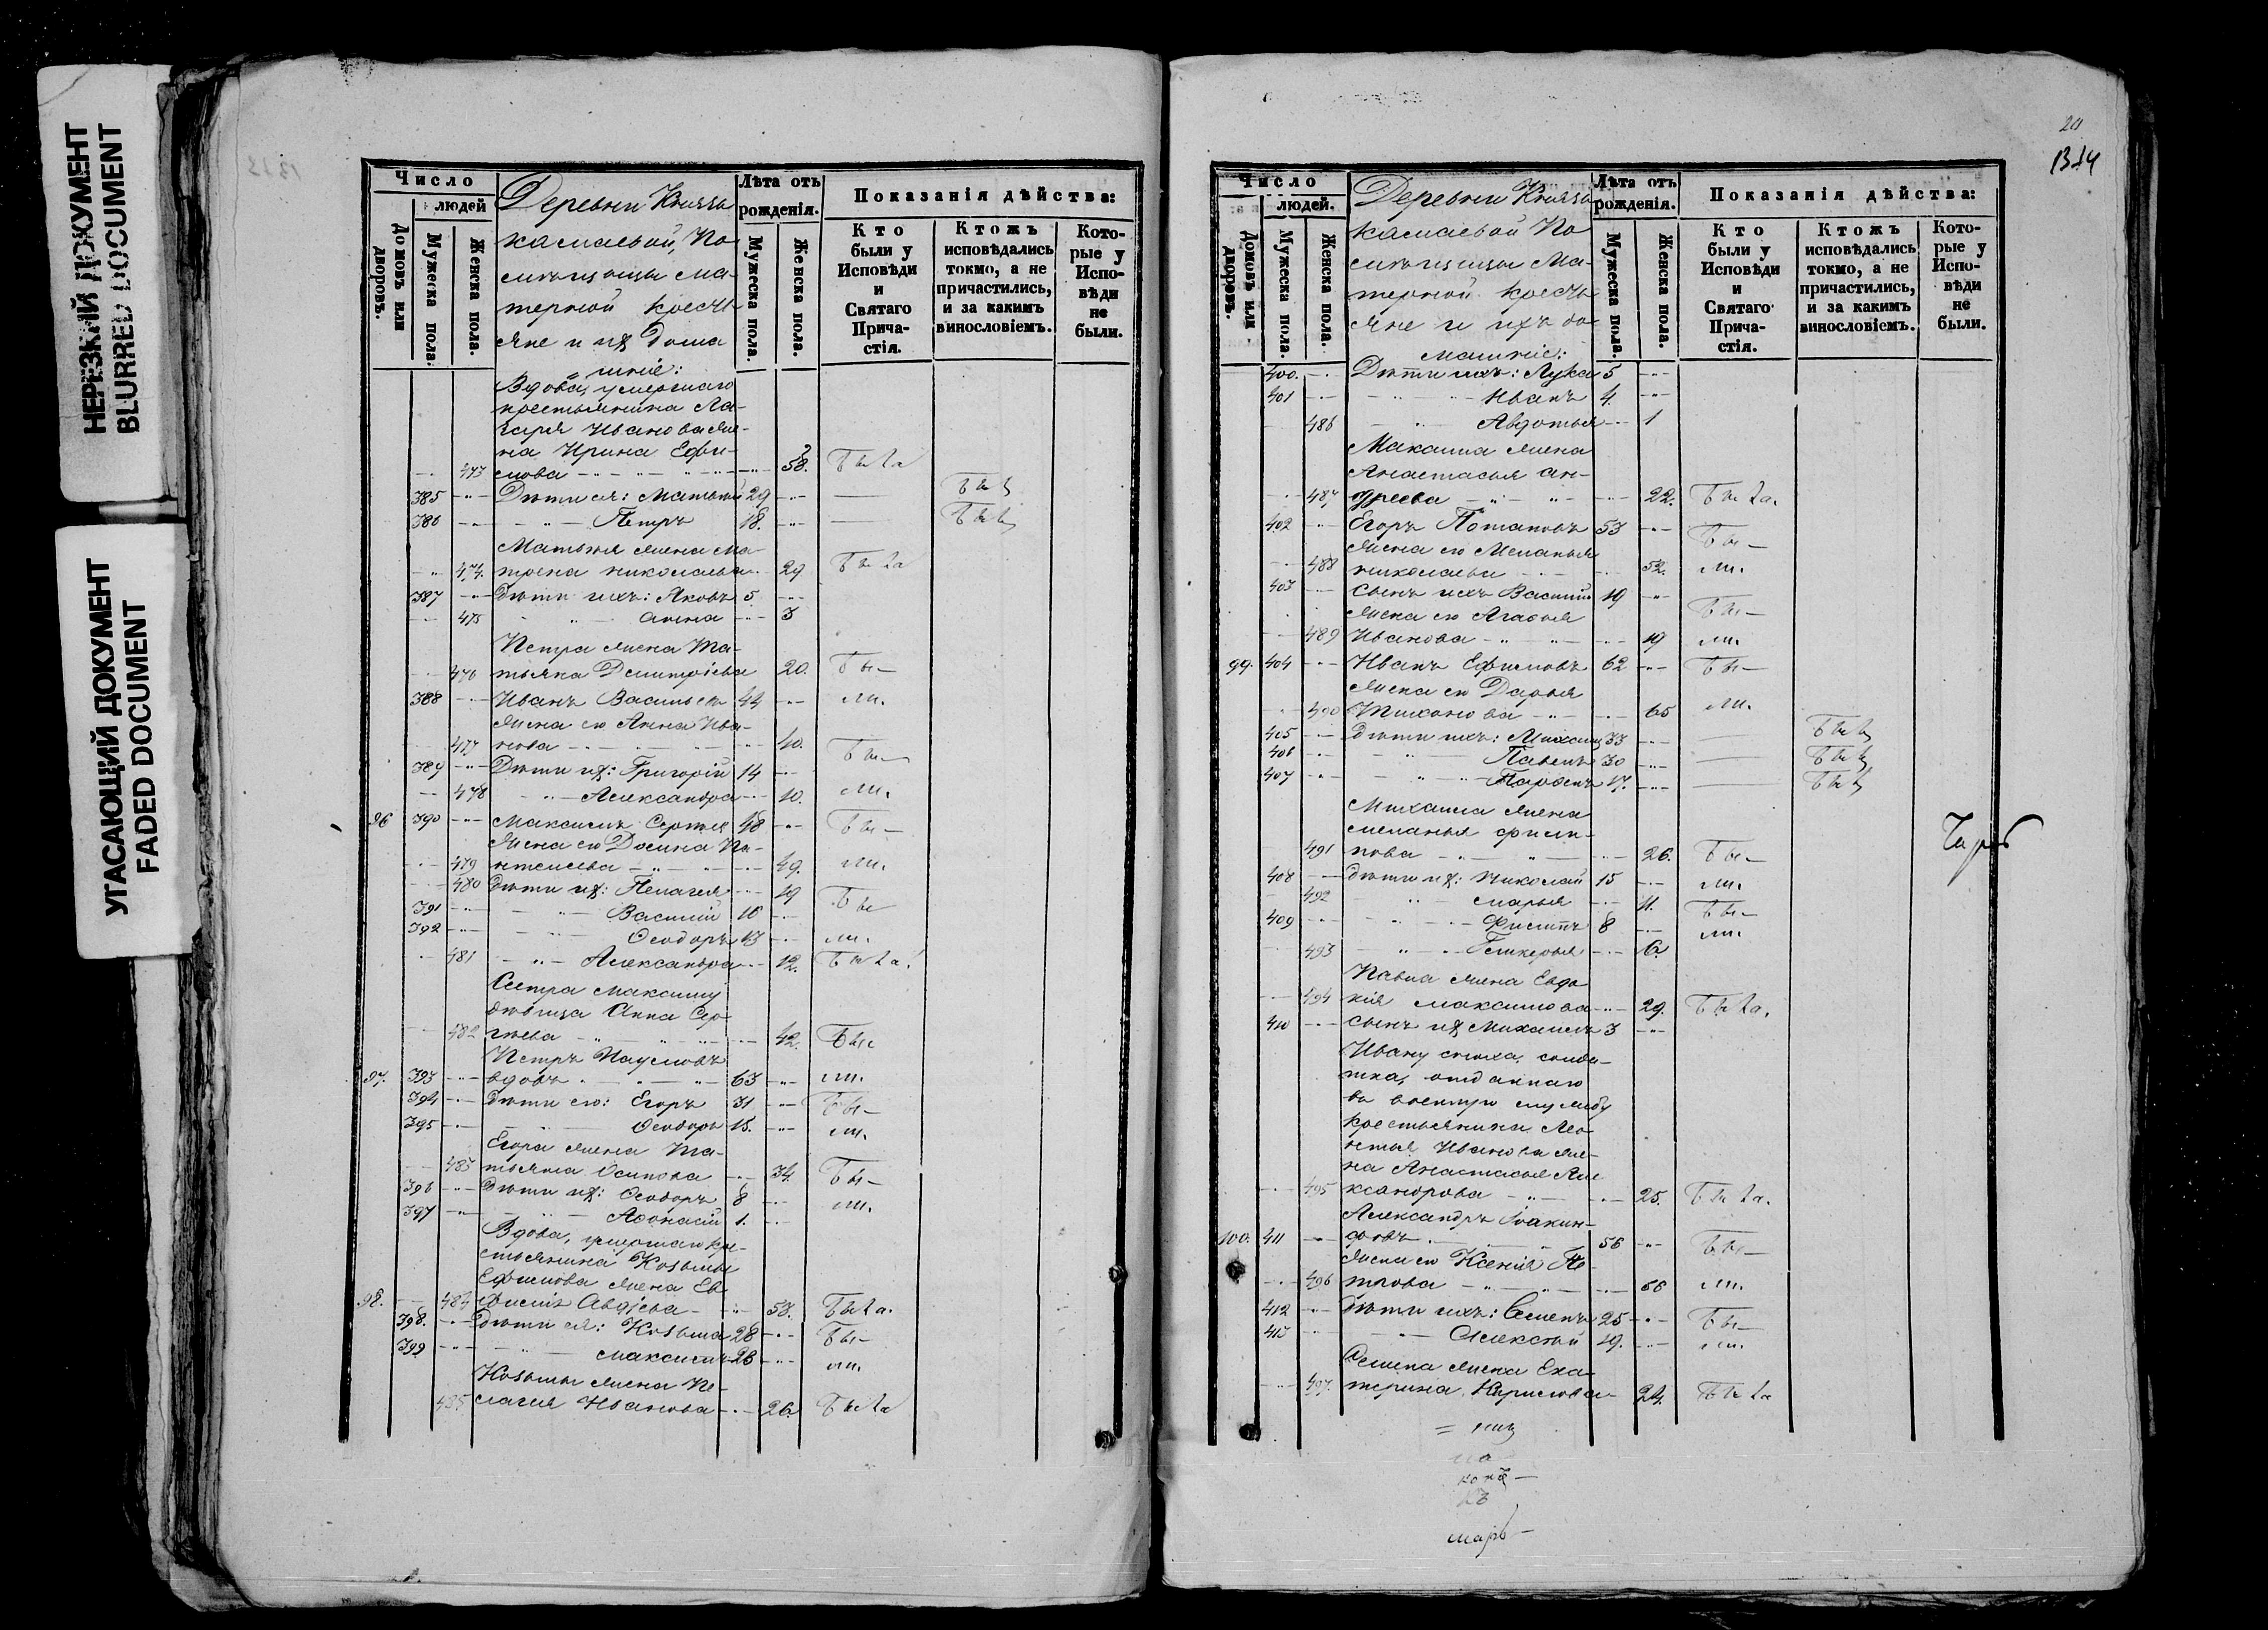 НЕРЕЗКИЙ ДОКУМЕНТ
BLURRED DOCUMENT
УГАСАЮЩИЙ ДОКУМЕНТ
FADED DOCUMENT
Число
людей
Домовъ или дворовъ.
Мужеска пола.
Женска пола.
Деревни Княза
камаевой, По
мѣщицы Ма-
терной кресть
яне и их дома
шніе:
Лѣта отъ рожденія.
Мужеска пола.
Женска пола.
Показанія дѣйства:
Кто были у Исповѣди и Святаго Прича-стія.
Ктожъ исповѣдались токмо, а не причастились, и за какимъ винословіемъ.
Кото-рые у Испо-вѣди не были.
Вдова, умершаго
крестьянина Ла-
заря Иванова же-
на Ирина Ефи-
473 мова 58. Была
385 Дѣти ея: Матвѣй 29 Бы
386 Петръ 18. Бы
Матвѣя жена Ма-
474. трена Николаева 29 Была
387 Дѣти ихъ: Яковъ 5.
475 Анна 3
Петра жена Та-
476 тьяна Димитріева 20. Бы-
388 Иванъ Васильевъ 44 ли.
Жена его Анна Ива-
477 нова 40. Бы-
389 Дѣти их: Григорій 14
478 Александра 10. ли.
96 390 Максимъ Сергѣев 48 Бы-
Жена его Домна Па-
479 нтелеева 49. ли.
480 Дѣти их: Пелагея 19 Бы
391 Василій 16
392 Ѳеодоръ 13 ли.
481 Александра 12. Была.
Сестра Максиму
дѣвица Анна Сер-
482 гѣева 42. Бы
Петръ Наумовъ
97. 393 вдовъ 63 ли.
394 Дѣти его: Егоръ 31 Бы-
395 Ѳеодоръ 15. ли.
Егора жена Та-
483 тьяна Осипова 34. Бы-
396 Дѣти их: Ѳеодоръ 8 ли.
397 Аѳонасій 1.
Вдова, умершаго кре-
стьянина Козьмы
Ефимова жена Ев
98. 484 фимія Авдѣева 53. Была.
398. Дѣти ея: Козьма 28 Бы-
399 Максимъ 23 ли.
Козьмы жена Пе-
485. лагея Иванова 26. Была
20
1314
Число
людей.
Домовъ или дворовъ.
Мужеска пола.
Женска пола.
Деревни Княза
камаевой По
мѣщицы Ма-
терной кресть
яне и ихъ до-
машніе:
Лѣта отъ рожденія.
Мужеска пола.
Женска пола.
Показанія дѣйства:
Кто были у Исповѣди и Святаго Прича-стія.
Ктожъ исповѣдались токмо, а не причастились, и за какимъ винословіемъ.
Кото-рые у Испо-вѣди не были.
400. Дѣти ихъ: Лука 5
401 Иванъ 4.
486 Авдотья 1
Максима жена
Анастасья Ан-
487 дреева 22. Была.
402 Егоръ Потаповъ 53 Бы-
Жена его Меланья
488 Николаева 52. ли.
403 Сынъ ихъ Василій 19 Бы-
Жена его Агафья
489 Иванова 19 ли.
99. 404 Иванъ Ефимовъ 62 Бы-
Жена его Дарья
490 Тихонова 65 ли.
405 Дѣти ихъ: Михаилъ 33 Бы
406 Павелъ 30 Бы
407 Парѳенъ 17. Бы
Михаила жена
Меланья Филип-
491 пова 26. Бы-
408 Дѣти их: Николай 15 ли.
492 Марья 11. Бы-
409 Филипъ 8 ли.
493 Гликерья 6.
Павла жена Евдо
494 кія Максимова 29. Была.
410 Сынъ их Михаилъ 3
Ивану сноха, солда-
тка, отданнаго
въ военную службу
крестьянина Лео-
нтья Иванова же-
на Анастасья Але
495 ксандрова 25. Была.
Александръ Іоакин-
100. 411 фовъ 56 Бы-
Жена его Ксенія Пе
496 трова 56 ли.
412 Дѣти ихъ: Семенъ 25 Бы-
413 Алексѣй 19. ли.
Семена жена Ека-
497. терина Кирилова 24. Была